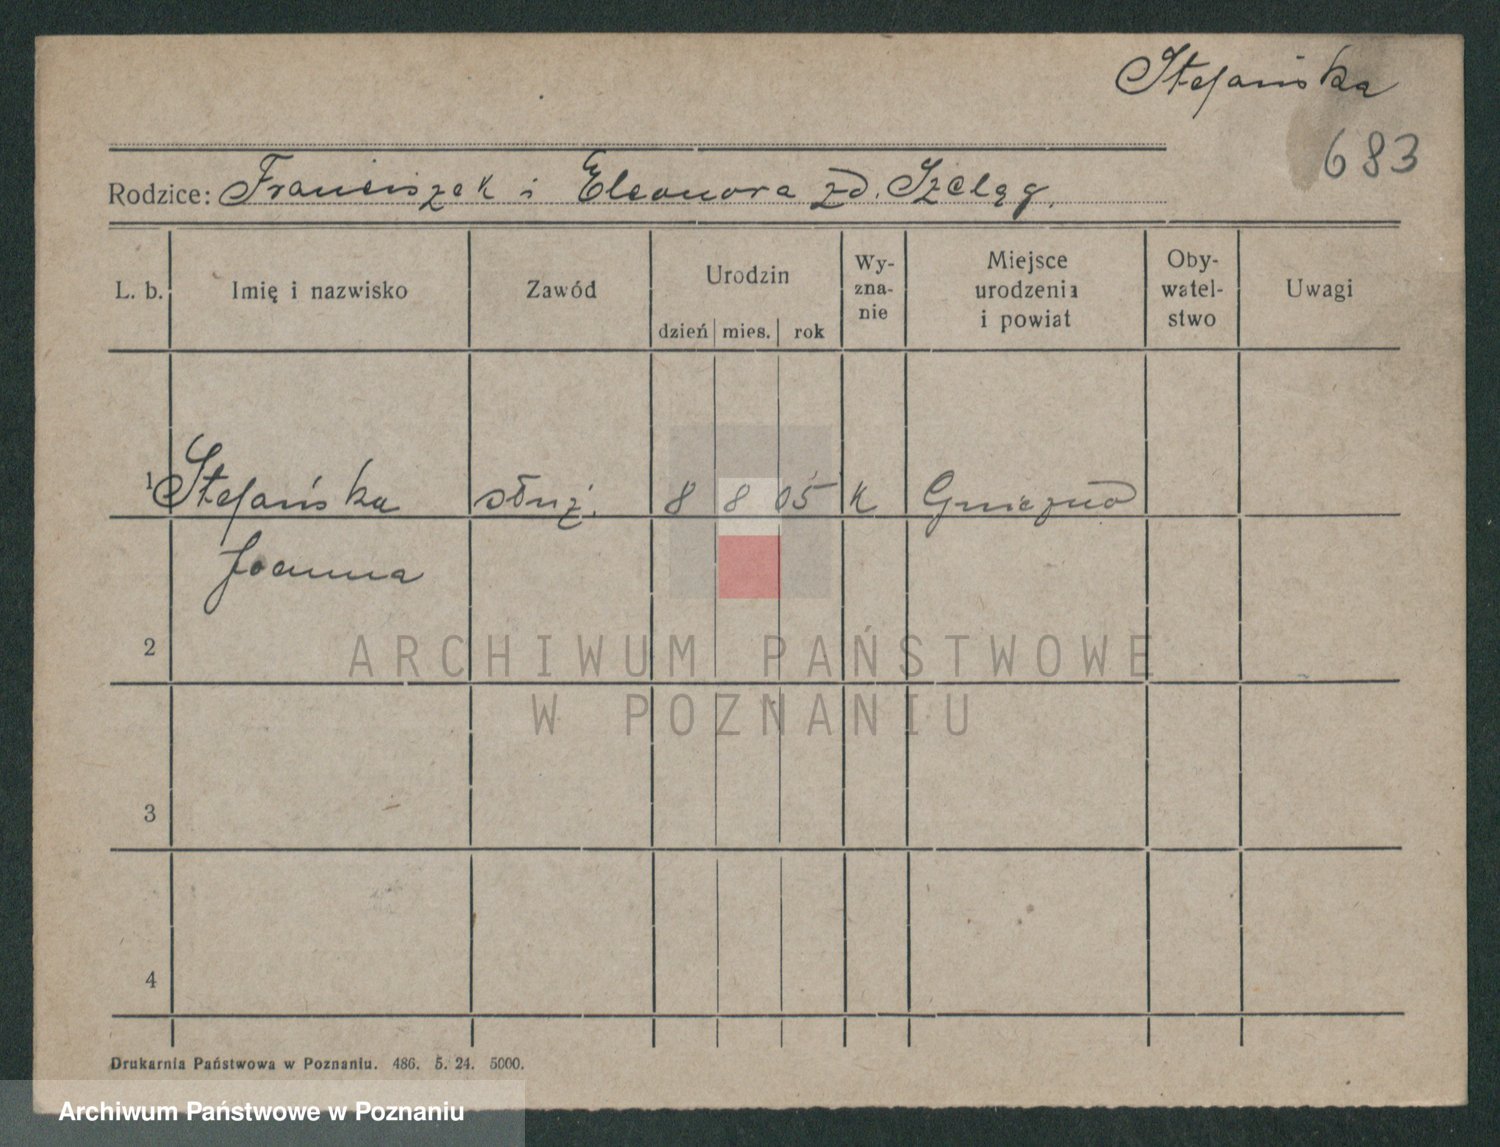 Stefańska
683
Rodzice: Franciszek i Eleonora zd. Szeląg.
L. b. Imię i nazwisko Zawód Urodzin dzień mies. rok Wy-zna-nie Miejsce urodzenia i powiat Oby-watel-stwo Uwagi
1 Stefańska służ. 8 8 05 k Gniezno
Joanna
2
ARCHIWUM PAŃSTWOWE
W POZNANIU
3
4
Drukarnia Państwowa w Poznaniu. 486. 5. 24. 5000.
Archiwum Państwowe w Poznaniu